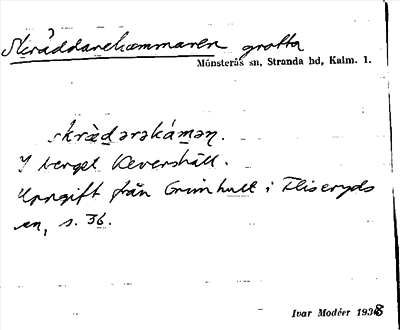 Skräddarekammaren grotta
Mönsterås sn, Stranda hd, Kalm. l.
skræ̀d̲ərəkám̲ən.
I berget Kevershäll.
Uppgift från Grimhult i Fliseryds
sn, s. 36.
Ivar Modéer 1938